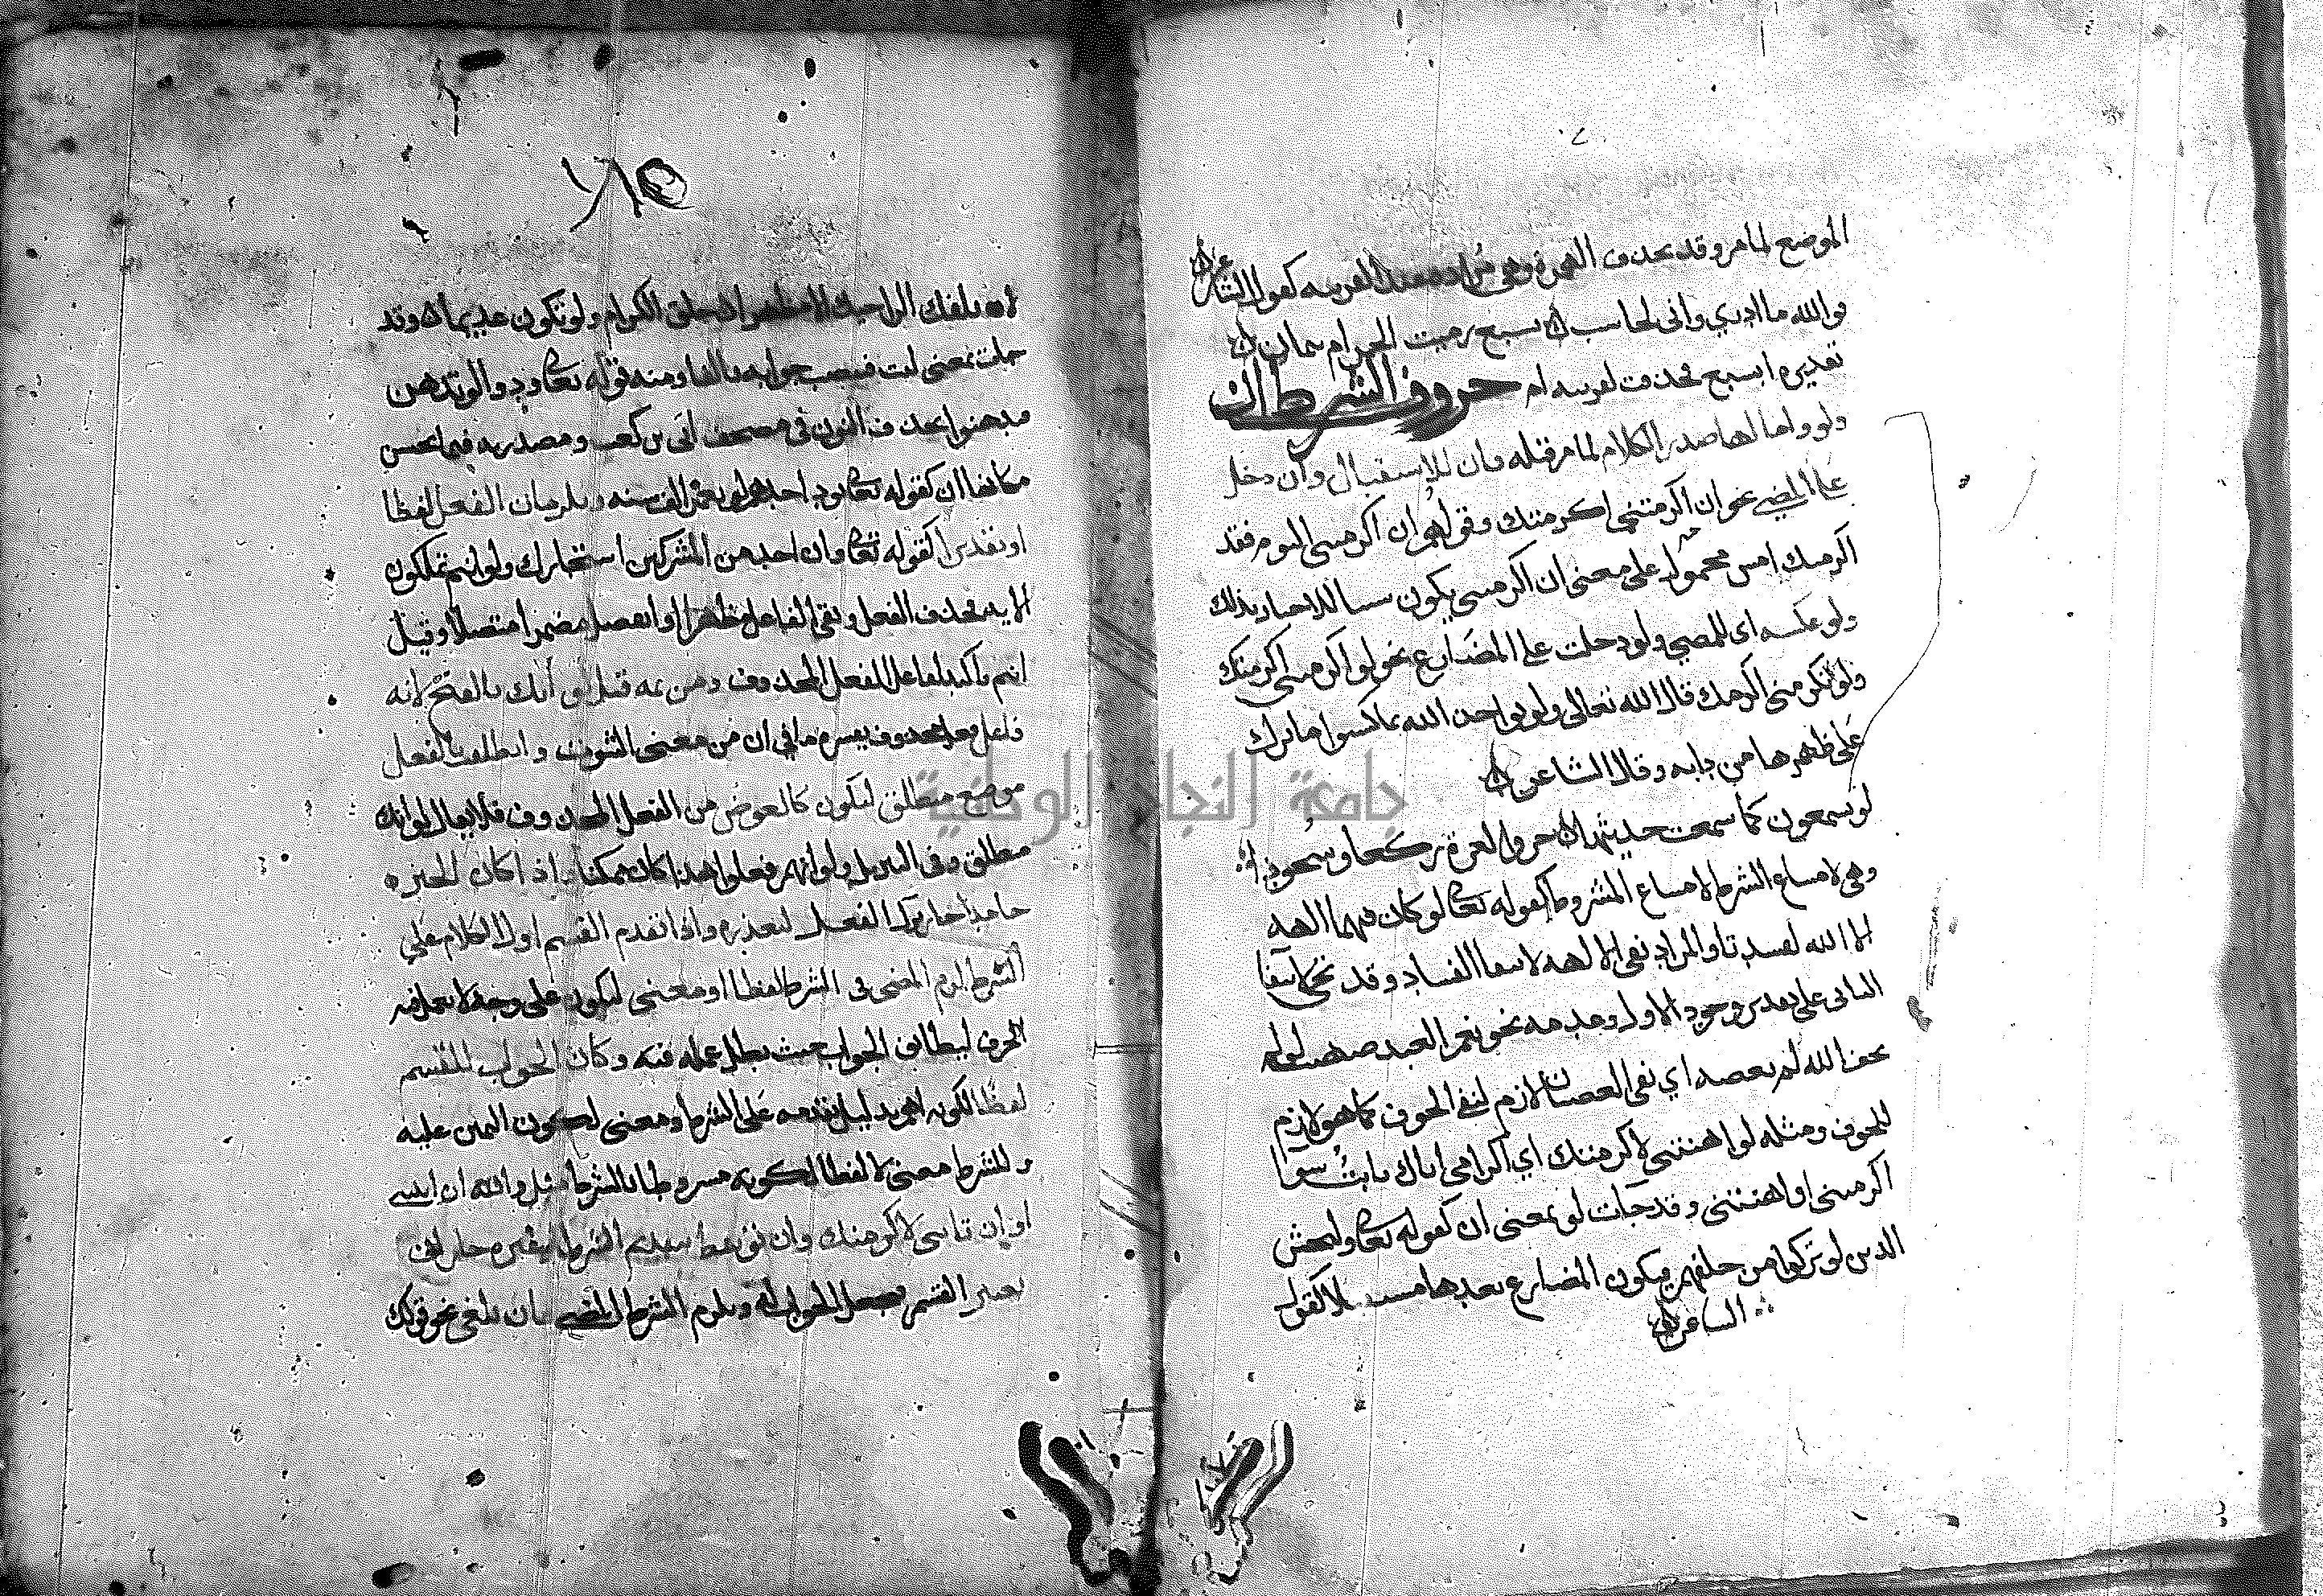 الموضع لما مر وقد تحذف الهمزة وهي مرادة عند القرينة كقول الشاعر
فوالله ما ادري واني لحاسب بسبع رميت الجمر ام بثمان
تقديره ابسبع فحذفت لقرينه ام حروف الشرط ان
ولو واما لها صدر الكلام لما مر قبله فان للاستقبال وان دخل
على المضي نحو ان اكرمتني اكرمتك وقولهم ان اكرمتني اليوم فقد
اكرمتك امس محمول على معنى ان اكرمتني يكون سببا للاخبار بذلك
ولو عكسه اى للمضي ولو دخلت على المضارع نحو لو اكرمتني اكرمتك
ولو تكرمني اكرمك قال الله تعالى ولو يواخذ الله بما كسبوا ما ترك
على ظهرها من دابه وقال الشاعر
لو يسمعون كما سمعت حديثها خروا لعزة ركعا وسجودا
وهي لامتناع الشرط لامتناع المشروط كقوله تعالى لو كان فيهما الهة
الا الله لفسدتا والمراد نفي الالهه لانتفا الفساد وقد تجي لانتفا
الثاني على تقدير وجود الاول وعدمه نحو نعم العبد صهيب لو لم
يخف الله لم يعصه اي نفي العصيان لازم لنفي الخوف كما هو لازم
للخوف ومثله لو اهنتني لاكرمتك اي اكرامي اياك ثابت سوا
اكرمتني او اهنتني وقد جآت لو بمعنى ان كقوله تعالى وليخش
الذين لو تركوا من خلفهم فيكون المضارع بعدها مستقبلا كقول
الشاعر
لا يلفك الراجيك الا مظهرا خلق الكرام ولو تكون عديما وقد
جات بمعنى ليت فينصب جوابه بالفا ومنه قوله تعالى ودوا لو تدهن
فيدهنوا بحذف النون في مصحف ابي بن كعب ومصدريه فيما يحسن
مكانها ان كقوله تعالى يود احدهم لو يعمر الف سنه ويلزمان الفعل لفظا
او تقديرا كقوله تعالى وان احد من المشركين استجارك ولو انتم تملكون
الايه فحذف الفعل وبقي الفاعل مظهرا او انفصل مضمرا متصلا وقيل
انتم تاكيد لفاعل الفعل المحذوف ومن ثمه قيل لو انك بالفتح لانه
فاعل فعل محذوف يفسره ما في ان من معنى الثبوت وانطلقت بالفعل
موضع منطلق ليكون كالعوض من الفعل المحذوف فلا يقال لو انك
منطلق وفي التنزيل ولو انهم فعلوا هذا ان كان ممكنا واذا كان الخبر
جامدا جاز ترك الفعل لتعذره واذا تقدم القسم اول الكلام على
الشرط لزم المضي في الشرط لفظا او معنى ليكون على وجه لا يعمل فيه
الحرف ليطابق الجواب حيث بطل عمله فيه وكان الجواب للقسم
لفظا لكونه اهم بدليل تقدمه على الشرط ومعنى لكون اليمين عليه
وللشرط معنى لا لفظا لكونه مشروطا بالشرط مثل والله ان اتيتني
او ان تاتني لاكرمتك وان توسط بتقديم الشرط او غيره جاز ان
يعتبر القسم فيجعل الجواب له ويلزم الشرط المضي وان يلغى نحو قولك
جامعة النجاح الوطنية